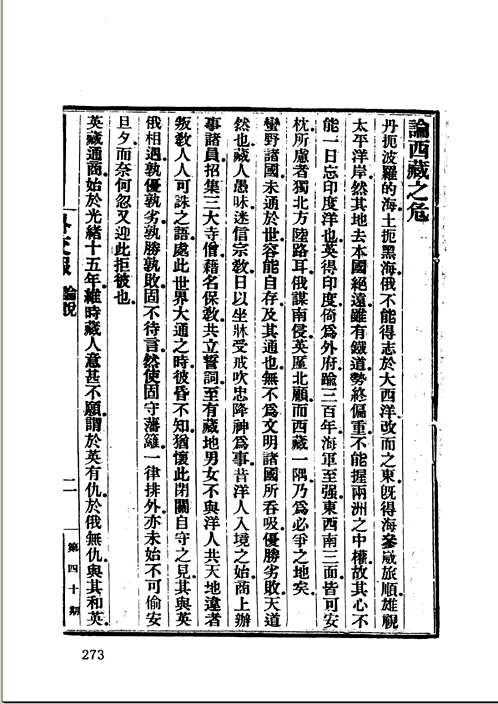 論西藏之危
丹扼波羅的海土扼黑海俄不能得志於大西洋改而之東旣得海參崴旅順雄視
太平洋岸然其地去本國絕遠雖有鐵道勢終偏重不能握兩洲之中權故其心不
能一日忘印度洋也英得印度倚爲外府踰三百年海軍至强東西南三面皆可安
枕所慮者獨北方陸路耳俄謀南侵英厪北顧而西藏一隅乃爲必爭之地矣
蠻野諸國未通於世容能自存及其通也無不爲文明諸國所吞吸優勝劣敗天道
然也藏人愚昧迷信宗敎日以坐牀受戒吹忠降神爲事昔洋人入境之始商上辦
事諸員招集三大寺僧藉名保敎共立誓詞至有藏地男女不與洋人共天地違者
叛敎人人可誅之語處此世界大通之時彼昏不知猶懷此閉關自守之見其與英
俄相遇孰優孰劣孰勝孰敗固不待言然使固守藩籬一律排外亦未始不可偷安
旦夕而奈何忽又迎此拒彼也
英藏通商始於光緒十五年維時藏人意甚不願謂於英有仇於俄無仇與其和英
外交報 論說 二 第四十期
273